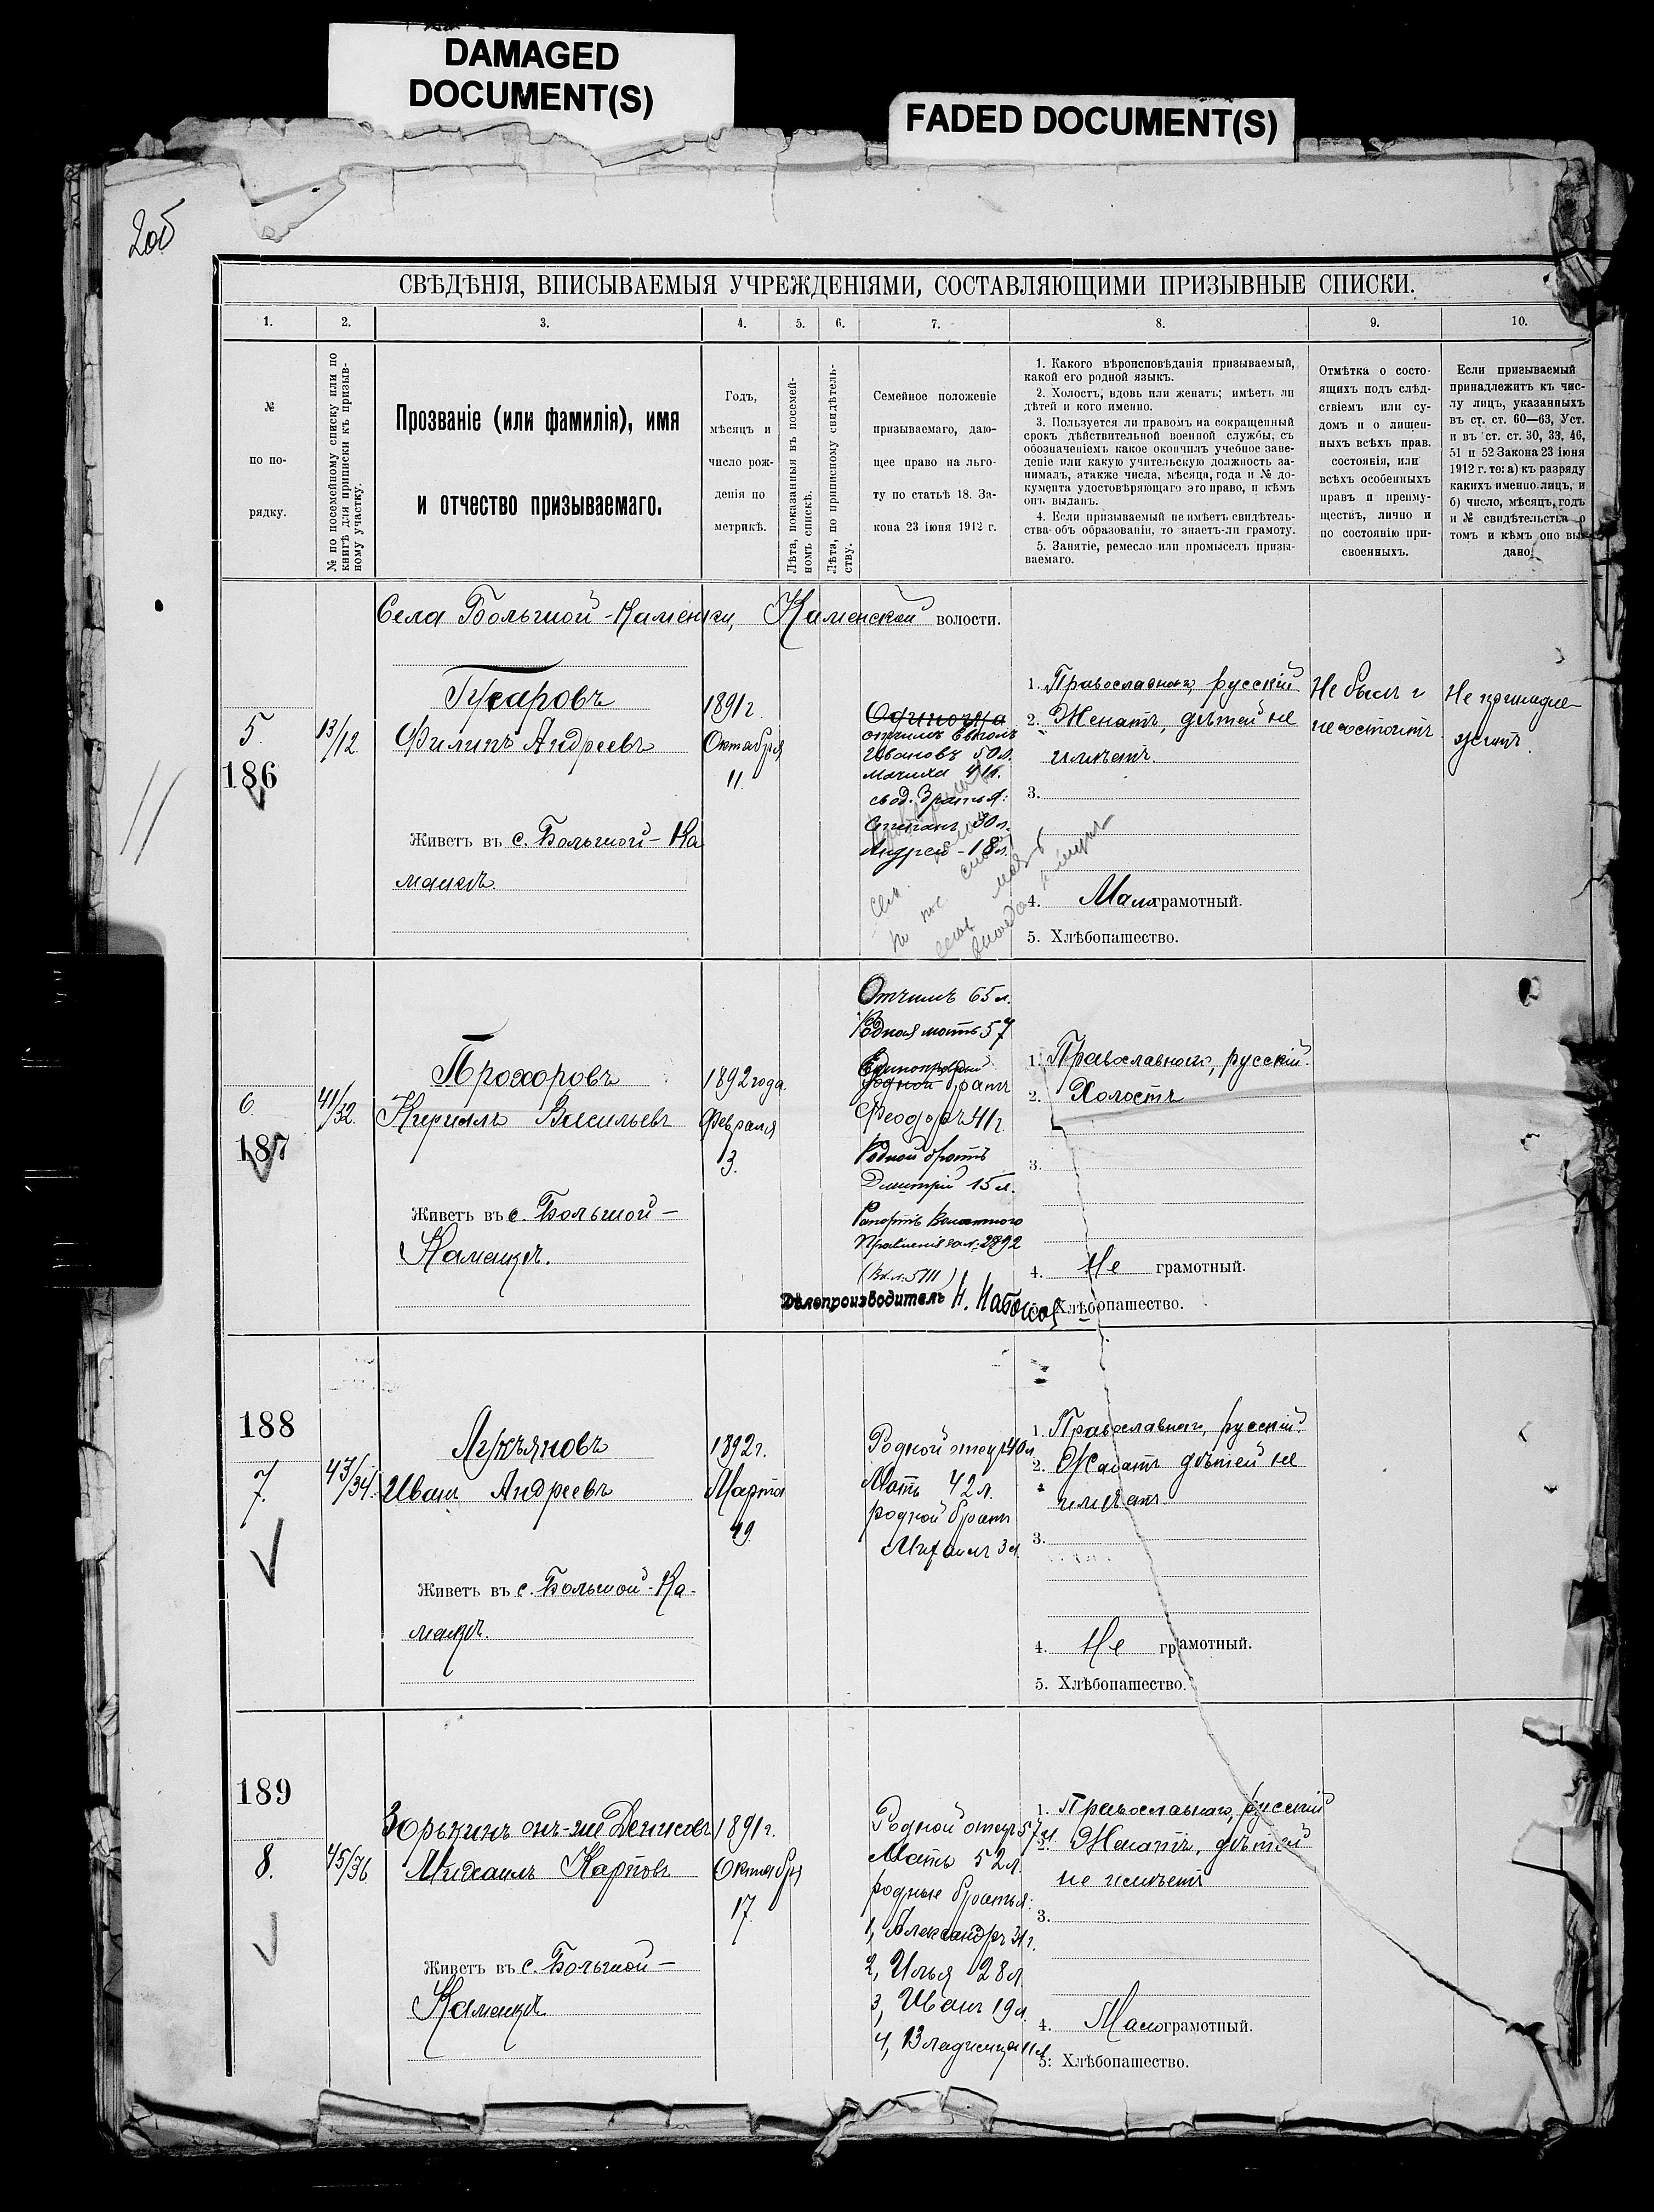 DAMAGED
DOCUMENT(S)
FADED DOCUMENT(S)
2об
СВѢДѢНІЯ, ВПИСЫВАЕМЫЯ УЧРЕЖДЕНІЯМИ, СОСТАВЛЯЮЩИМИ ПРИЗЫВНЫЕ СПИСКИ.
1. 2. 3. 4. 5. 6. 7. 8. 9. 10.
№
по по-
рядку.
№ по посемейному списку или по
книгѣ для приписки къ призыв-
ному участку.
Прозваніе (или фамилія), имя
и отчество призываемаго.
Годъ,
мѣсяцъ и
число рож-
денія по
метрикѣ.
Лѣта, показанныя въ посемей-
номъ спискѣ.
Лѣта, по приписному свидѣтель-
ству.
Семейное положеніе
призываемаго, даю-
щее право на льго-
ту по статьѣ 18. За-
кона 23 іюня 1912 г.
1. Какого вѣроисповѣданія призываемый,
какой его родной языкъ.
2. Холостъ, вдовъ или женатъ; имѣетъ ли
дѣтей и кого именно.
3. Пользуется ли правомъ на сокращенный
срокъ дѣйствительной военной службы, съ
обозначеніемъ какое окончилъ учебное заве-
деніе или какую учительскую должность за-
нималъ, атакже числа, мѣсяца, года и № до-
кумента удостовѣряющаго это право, и кѣмъ
онъ выданъ.
4. Если призываемый не имѣетъ свидѣтель-
ства объ образованіи, то знаетъ-ли грамоту.
5. Занятіе, ремесло или промыселъ призы-
ваемаго.
Отмѣтка о состо-
ящихъ подъ слѣд-
ствіемъ или су-
домъ и о лишен-
ныхъ всѣхъ прав.
состоянія, или
всѣхъ особенныхъ
правъ и преиму-
ществъ, лично и
по состоянію при-
своенныхъ.
Если призываемый
принадлежитъ къ чис-
лу лицъ, указанныхъ
въ ст. ст. 60—63, Уст.
и въ ст. ст. 30, 33, 46,
51 и 52 Закона 23 іюня
1912 г. то: а) къ разряду
какихъ именно лицъ, и
б) число, мѣсяцъ, годъ
и № свидѣтельства о
томъ и кѣмъ оно вы-
дано.
Села Большой-Каменки, Каменской волости.
5.
186
13/12
Гусаровъ
Филипъ Андреевъ
Живетъ въ с. Большой-Ка
менкѣ.
1891 г.
Октября
11.
Одиночка
отчимъ
Ивановъ 50 л.
мачиха
свод. братья:
Степанъ 30 л.
Андрей - 18 л.
1. Православнаго, русскій
2. Женатъ, дѣтей не
имѣетъ.
3.
4. Малограмотный.
5. Хлѣбопашество.
Не былъ и
не состоитъ
Не принадле-
житъ.
6.
187
41/32.
Прохоровъ
Кириллъ Васильевъ
Живетъ въ с. Большой-
Каменкѣ.
1892 года
Февраля
3.
Отчимъ 65 л.
Родная мать 57
родной братъ
Феодоръ 41 г.
Родной братъ
Дмитрій 15 л.
Рапортъ Волостного
Правленія за № 2892
(Вх. № 5111)
Дѣлопроизводитель Н.
1. Православнаго, русскій.
2. Холостъ
3.
4. Не грамотный.
5. Хлѣбопашество.
188
7.
43/34.
Лукьяновъ
Иванъ Андреевъ
Живетъ въ с. Большой-Ка-
менкѣ.
1892 г.
Марта
19.
Родной отецъ 40 л.
Мать 42 л.
родной братъ
Михаилъ 3 л.
1. Православнаго, русскій.
2. Женатъ дѣтей не
имѣетъ
3.
4. Не грамотный.
5. Хлѣбопашество.
189
8.
45/36
Зорькинъ онъ-же Денисовъ
Михаилъ Карповъ
Живетъ въ с. Большой-
Каменкѣ
1891 г.
Октября
17.
Родной отецъ 57 л.
Мать 52 л.
родные братья:
1, Александръ 31 г.
2, Илья 28 л.
3, Иванъ 19 л.
4, Владиміръ 11 л.
1. Православнаго, русскій
2. Женатъ, дѣтей
не имѣетъ
3.
4. Малограмотный.
5. Хлѣбопашество.